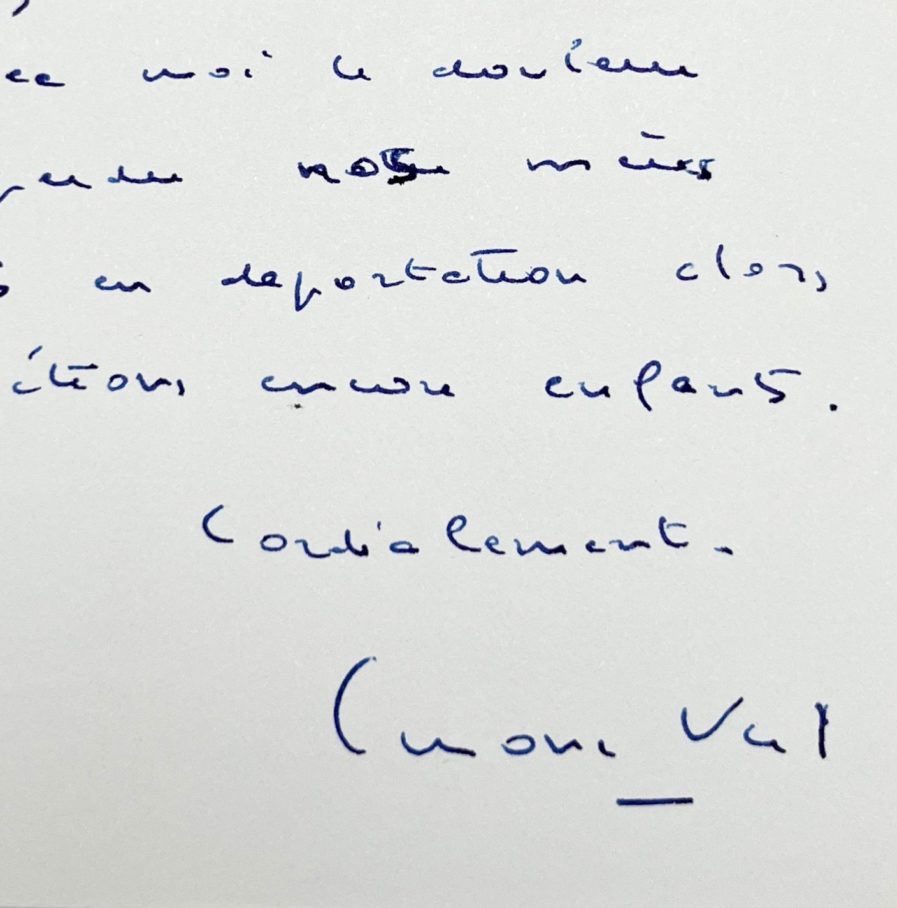 moi la douleur
perdu nos mères
en déportation alors
étions encore enfants.
Cordialement.
Simone Veil